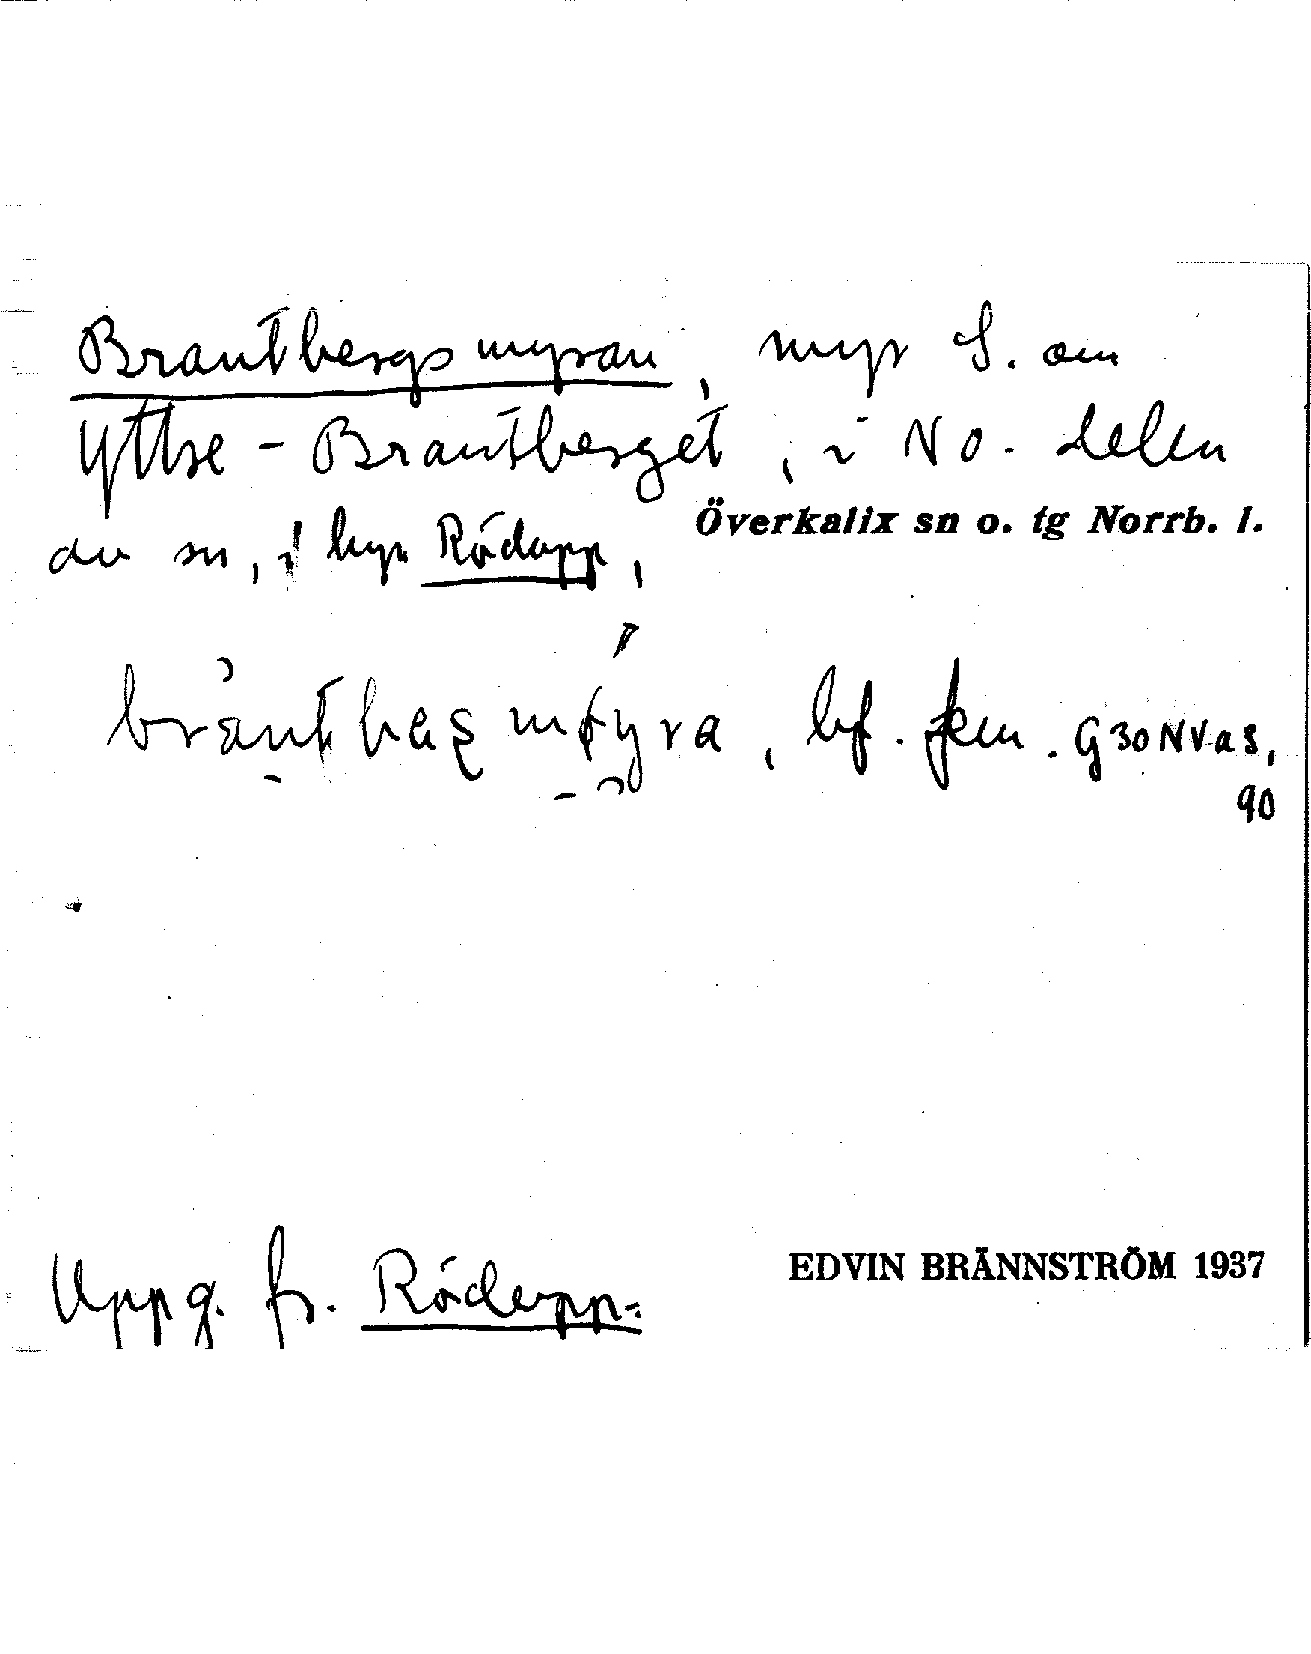 Brantbergsmyran, myr S. om
Yttre-Brantberget, i NO. delen
Överkalix sn o. tg Norrb. l.
av sn, i byn Rödupp,
bf. fem. G30NVaS,
90
Uppg. fr. Rödupp.
EDVIN BRÄNNSTRÖM 1937